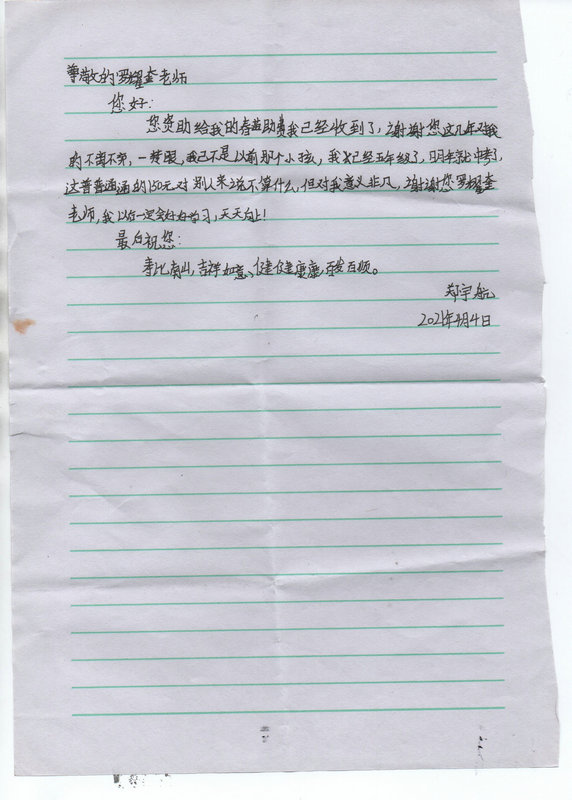 尊敬的罗耀奎老师
您好:
您资助给我的春苗助费我已经收到了,谢谢您这几年对我
的不离不弃,一转眼,我已不是以前那个小孩,我已经五年级了,明年就中考了,
这普普通通的150元对别人来说不算什么,但对我意义非凡,谢谢您罗耀奎
老师,我以后一定会好好学习,天天向上!
最后祝您:
寿比南山,吉祥如意、健健康康,百发百顺。
郑宇航
2021年4月4日